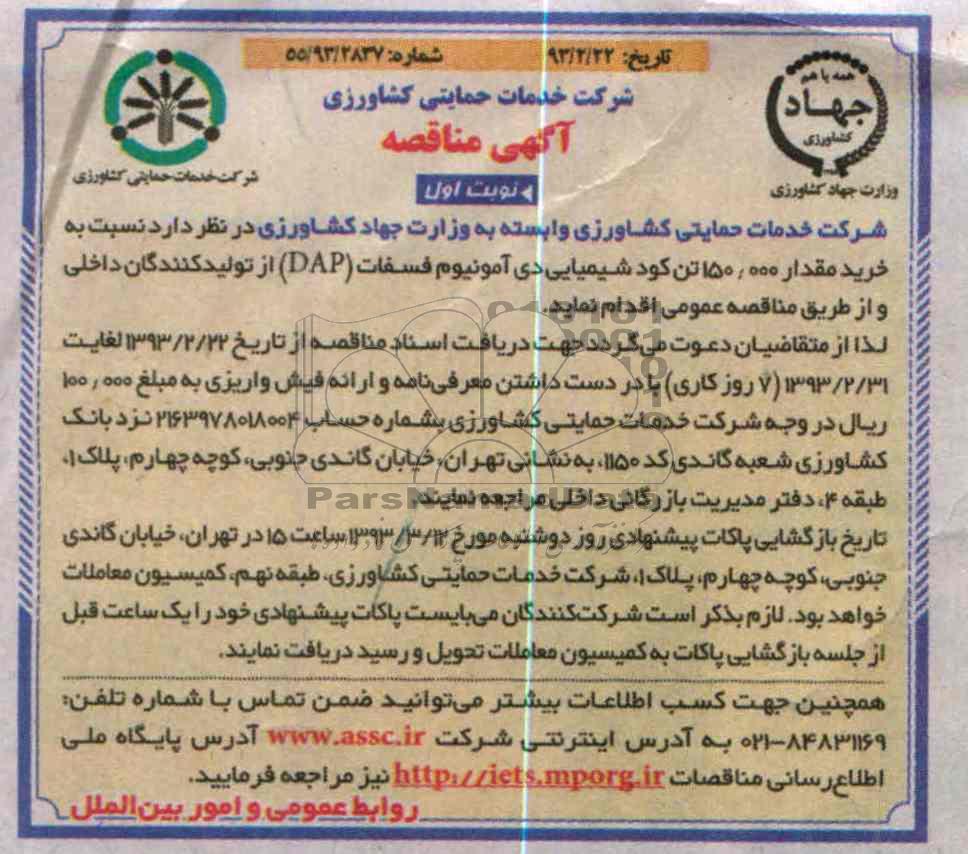 تاریخ: ۹۳/۲/۲۲ شماره: ۵۵/۹۳/۲۸۳۷
همه با هم
جهاد
کشاورزی
وزارت جهاد کشاورزی
شرکت خدمات حمایتی کشاورزی
شرکت خدمات حمایتی کشاورزی
آگهی مناقصه
نوبت اول
شرکت خدمات حمایتی کشاورزی وابسته به وزارت جهاد کشاورزی در نظر دارد نسبت به
خرید مقدار ۱۵۰٫۰۰۰ تن کود شیمیایی دی آمونیوم فسفات (DAP) از تولیدکنندگان داخلی
و از طریق مناقصه عمومی اقدام نماید.
لذا از متقاضیان دعوت می‌گردد جهت دریافت اسناد مناقصه از تاریخ ۱۳۹۳/۲/۲۲ لغایت
۱۳۹۳/۲/۳۱ (۷ روز کاری) با در دست داشتن معرفی‌نامه و ارائه فیش واریزی به مبلغ ۱۰۰٫۰۰۰
ریال در وجه شرکت خدمات حمایتی کشاورزی بشماره حساب ۲۱۶۳۹۷۸۰۱۸۰۰۴ نزد بانک
کشاورزی شعبه گاندی کد ۱۱۵۰، به نشانی تهران، خیابان گاندی جنوبی، کوچه چهارم، پلاک ۱،
طبقه ۴، دفتر مدیریت بازرگانی داخلی مراجعه نمایند.
تاریخ بازگشایی پاکات پیشنهادی روز دوشنبه مورخ ۱۳۹۳/۳/۱۲ ساعت ۱۵ در تهران، خیابان گاندی
جنوبی، کوچه چهارم، پلاک ۱، شرکت خدمات حمایتی کشاورزی، طبقه نهم، کمیسیون معاملات
خواهد بود. لازم بذکر است شرکت‌کنندگان می‌بایست پاکات پیشنهادی خود را یک ساعت قبل
از جلسه بازگشایی پاکات به کمیسیون معاملات تحویل و رسید دریافت نمایند.
همچنین جهت کسب اطلاعات بیشتر می‌توانید ضمن تماس با شماره تلفن:
۰۲۱-۸۴۸۳۱۱۶۹ به آدرس اینترنتی شرکت www.assc.ir آدرس پایگاه ملی
اطلاع‌رسانی مناقصات http://iets.mporg.ir نیز مراجعه فرمایید.
روابط عمومی و امور بین‌الملل